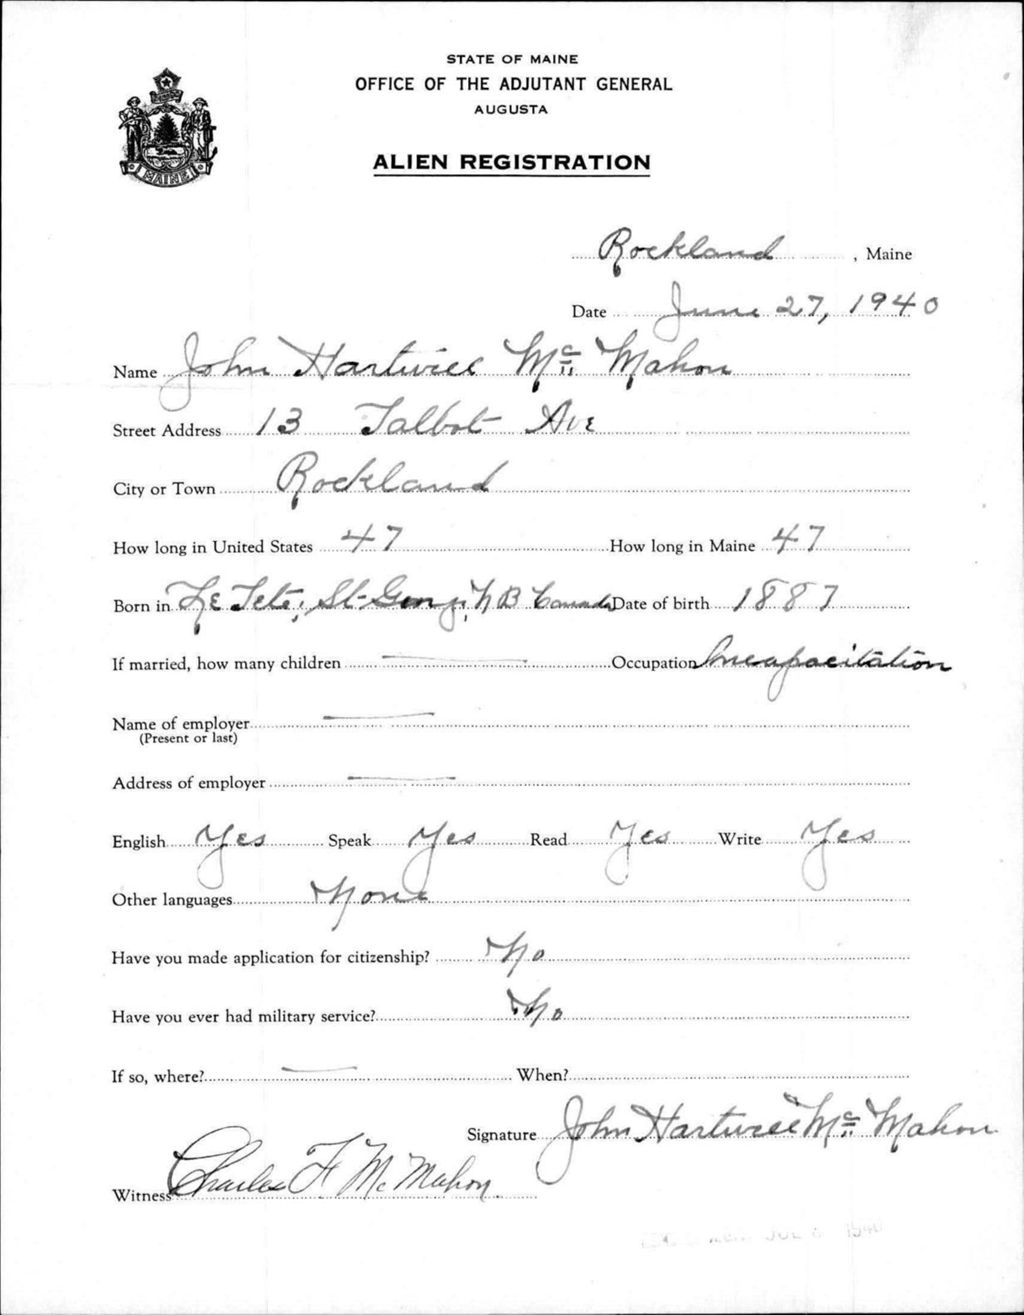 STATE OF MAINE
OFFICE OF THE ADJUTANT GENERAL
AUGUSTA
ALIEN REGISTRATION
MAINE
Rockland, Maine
Date June 27, 1940
Name John Hartwell Mc Mahon
Street Address 13 Talbot Ave
City or Town Rockland
How long in United States 47 How long in Maine 47
Born in Le Tete, St. George, N B Canada Date of birth 1887
If married, how many children — Occupation Incapacitation
Name of employer —
(Present or last)
Address of employer —
English Yes Speak Yes Read Yes Write Yes
Other languages None
Have you made application for citizenship? No
Have you ever had military service? No
If so, where? — When?
Signature John Hartwell Mc Mahon
Witness Charles F Mc Mahon
JUL 1940